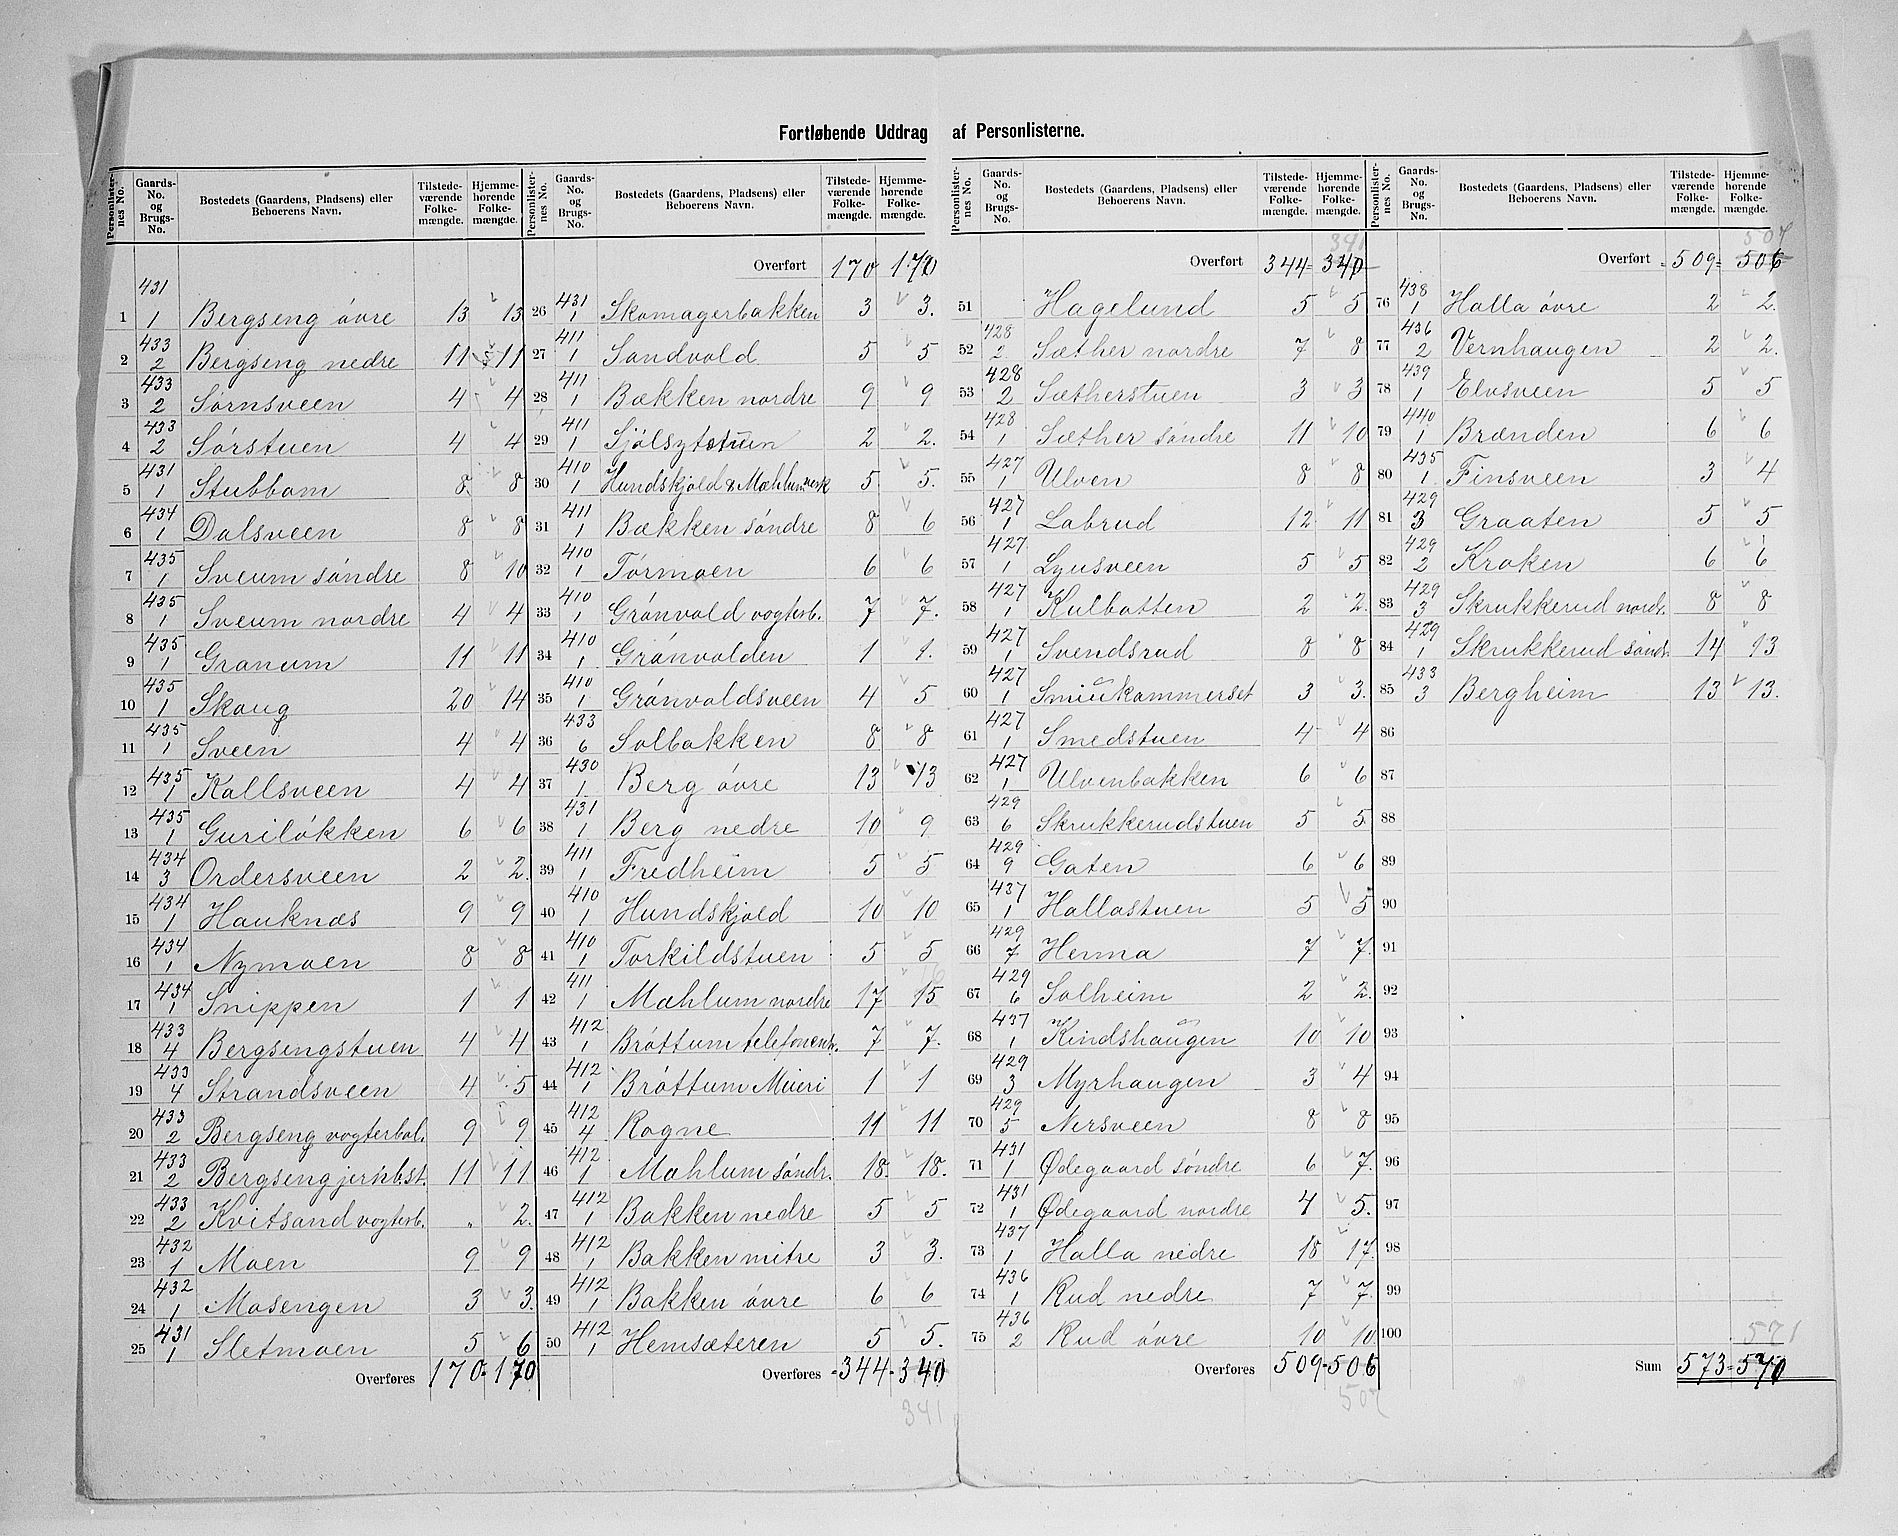 Fortløbende Uddrag af Personlisterne.
Personlisternes No. Gaards-No. og Brugs-No. Bostedets (Gaardens, Pladsens) eller Beboerens Navn. Tilstedeværende Folkemængde. Hjemmehørende Folkemængde.
1 431/1 Bergseng øvre 13 13
2 433/2 Bergseng nedre 11 11
3 433/2 Sørnsveen 4 4
4 433/2 Sørstuen 4 4
5 431/1 Stubbom 8 8
6 434/1 Dalsveen 8 8
7 435/1 Sveum søndre 8 10
8 435/1 Sveum nordre 4 4
9 435/1 Granum 11 11
10 435/1 Skaug 20 14
11 435/1 Sveen 4 4
12 435/1 Kallsveen 4 4
13 435/1 Guriløkken 6 6
14 434/3 Ordersveen 2 2.
15 434/1 Hauknæs 9 9
16 434/1 Nymoen 8 8
17 434/1 Snippen 1 1
18 433/4 Bergsengstuen 4 4
19 433/4 Strandsveen 4 5
20 433/2 Bergseng vogterbol. 9 9
21 433/2 Bergseng jernbst. 11 11
22 433/2 Kvitsand vogterb. " 2.
23 432/1 Moen 9 9
24 432/1 Mosengen 3 3.
25 431/1 Sletmoen 5 6
Overføres 170 - 170
Personlisternes No. Gaards-No. og Brugs-No. Bostedets (Gaardens, Pladsens) eller Beboerens Navn. Tilstedeværende Folkemængde. Hjemmehørende Folkemængde.
Overført 170 170
26 431/1 Skomagerbakken 3 3.
27 411/1 Sandvold 5 5
28 411/1 Bækken nordre 9 9
29 411/1 2 2.
30 410/1 Hundskjold & Mæhlum 5 5.
31 411/1 Bækken søndre 8 6
32 410/1 Tørmoen 6 6
33 410/1 Grønvold vogterb. 7 7.
34 410/1 Grønvolden 1 1.
35 410/1 Grønvoldsveen 4 5
36 433/6 Solbakken 8 8
37 430/1 Berg øvre 13 13
38 431/1 Berg nedre 10 9
39 411/1 Fredheim 5 5
40 410/1 Hundskjold 10 10
41 410/1 Torkildstuen 5 5
42 411/1 Mæhlum nordre 17 15
43 412/1 Brøttum telefoncntr. 7 7.
44 412/1 Brøttum Mieri 1 1
45 412/4 Rogne 11 11
46 412/1 Mæhlum søndr. 18. 18.
47 412/1 Bakken nedre 5 5
48 412/1 Bakken mitre 3 3.
49 412/1 Bakken øvre 6 6
50 412/1 Hemsæteren 5 5.
Overføres 344 - 340
341
Personlisternes No. Gaards-No. og Brugs-No. Bostedets (Gaardens, Pladsens) eller Beboerens Navn. Tilstedeværende Folkemængde. Hjemmehørende Folkemængde.
341
Overført 344 = 340
51 Hagelund 5 5
52 428/2 Sæther nordre 7 8
53 428/2 Sætherstuen 3 3
54 428/1 Sæther søndre 11 10
55 427/1 Ulven 8 8
56 427/1 Labrud 12 11
57 427/1 Lyusveen 5 5
58 427/1 Kulbotten 2 2.
59 427/1 Svendsrud 8 8
60 427/1 3 3.
61 427/1 Smedstuen 4 4
62 427/1 Ulvenbakken 6 6
63 429/6 Skrukkerudstuen 5 5
64 429/9 Gaten 6 6
65 437/1 Hallastuen 5 5
66 429/7 Herma 7 7.
67 429/6 Solheim 2 2.
68 437/1 Kindshaugen 10 10
69 429/3 Myrhaugen 3 4
70 429/5 Nersveen 8 8
71 431/1 Ødegaard søndre 6 7.
72 431/1 Ødegaard nordre 4 5.
73 437/1 Halla nedre 18 17.
74 436/1 Rud nedre 7 7.
75 436/2 Rud øvre 10 10.
Overføres 509 - 506
507
Personlisternes No. Gaards-No. og Brugs-No. Bostedets (Gaardens, Pladsens) eller Beboerens Navn. Tilstedeværende Folkemængde. Hjemmehørende Folkemængde.
507
Overført 509 = 506
76 438/1 Halla øvre 2 2.
77 436/2 Vernhaugen 2 2.
78 439/1 Elvsveen 5 5
79 440/1 Brænden 6 6
80 435/1 Finsveen 3 4
81 429/3 Graaten 5 5
82 429/2 Kroken 6 6
83 429/3 Skrukkerud nordr. 8 8
84 429/1 Skrukkerud søndr. 14 13
85 433/3 Bergheim 13 13.
86
87
88
89
90
91
92
93
94
95
96
97
98
99
100
571
Sum 573 = 570